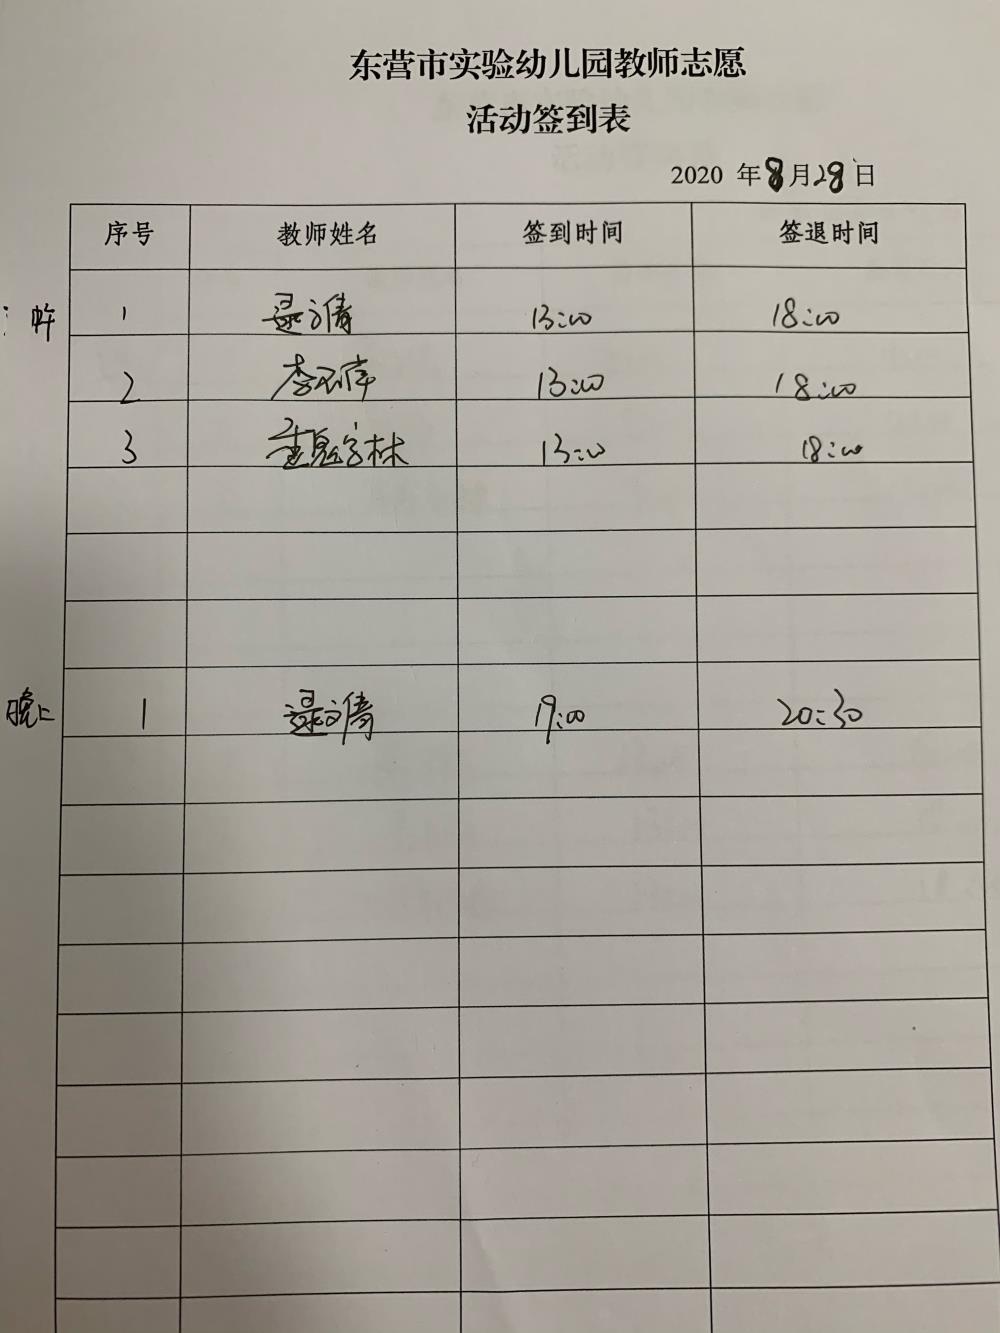 东营市实验幼儿园教师志愿
活动签到表
2020 年8月28日
序号 教师姓名 签到时间 签退时间
1 13:00 18:00
2 李 13:00 18:00
3 13:00 18:00
晚上 1 19:00 20:30